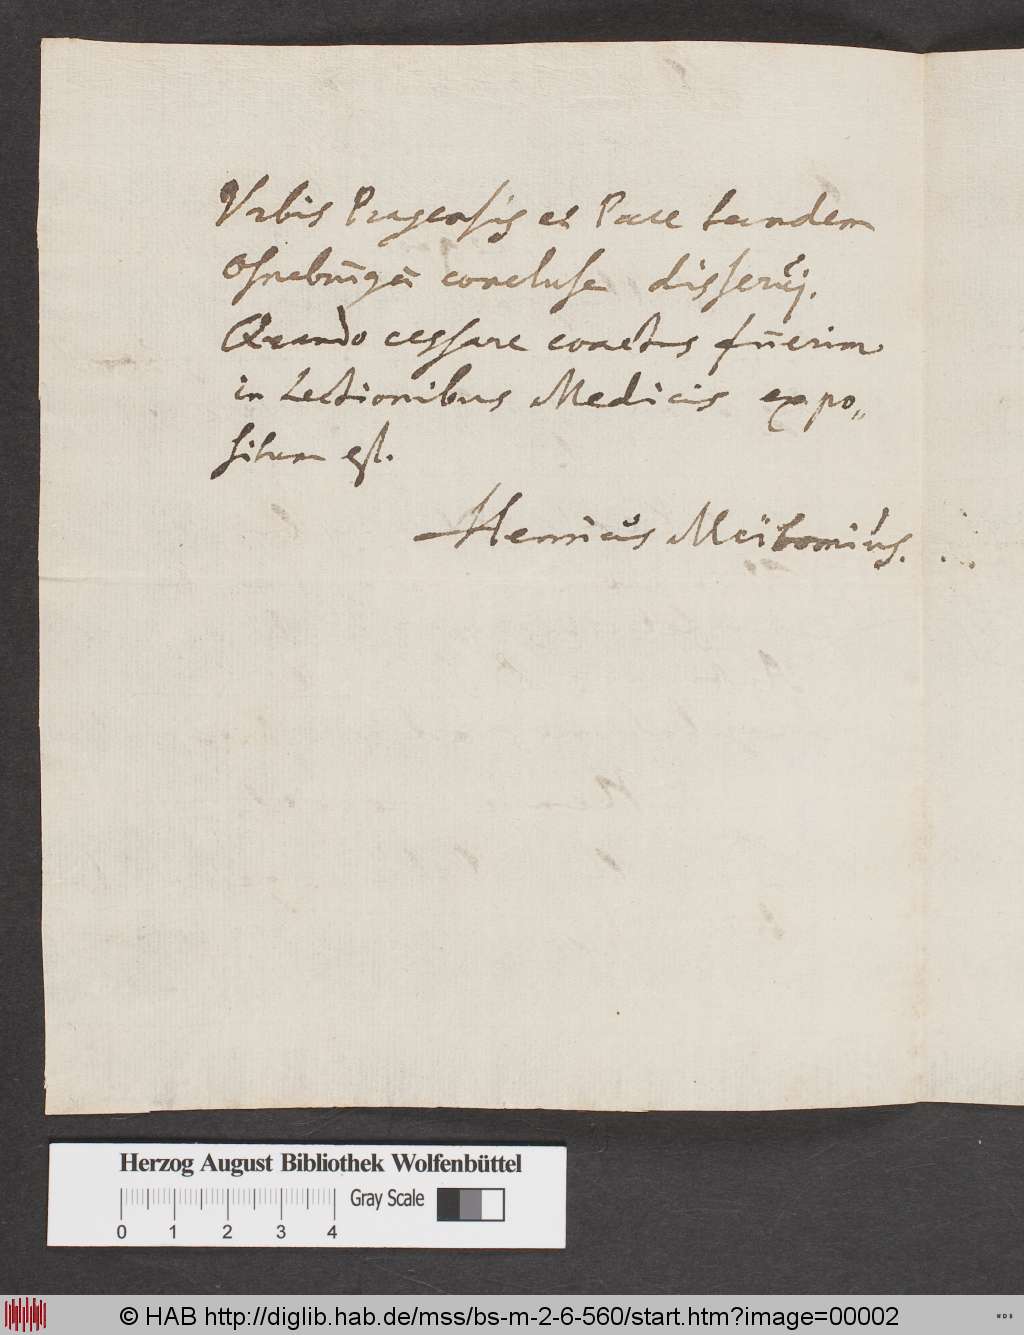 Urbis Pragensis et Pace tandem
Osnabrŭgā conclusa disserŭj.
Quando cessare coactus fŭerim
in Lectionibus Medicis expo„
situm est.
Henricŭs Meibomiŭs.
Herzog August Bibliothek Wolfenbüttel
Gray Scale
0 1 2 3 4
© HAB http://diglib.hab.de/mss/bs-m-2-6-560/start.htm?image=00002
WDB